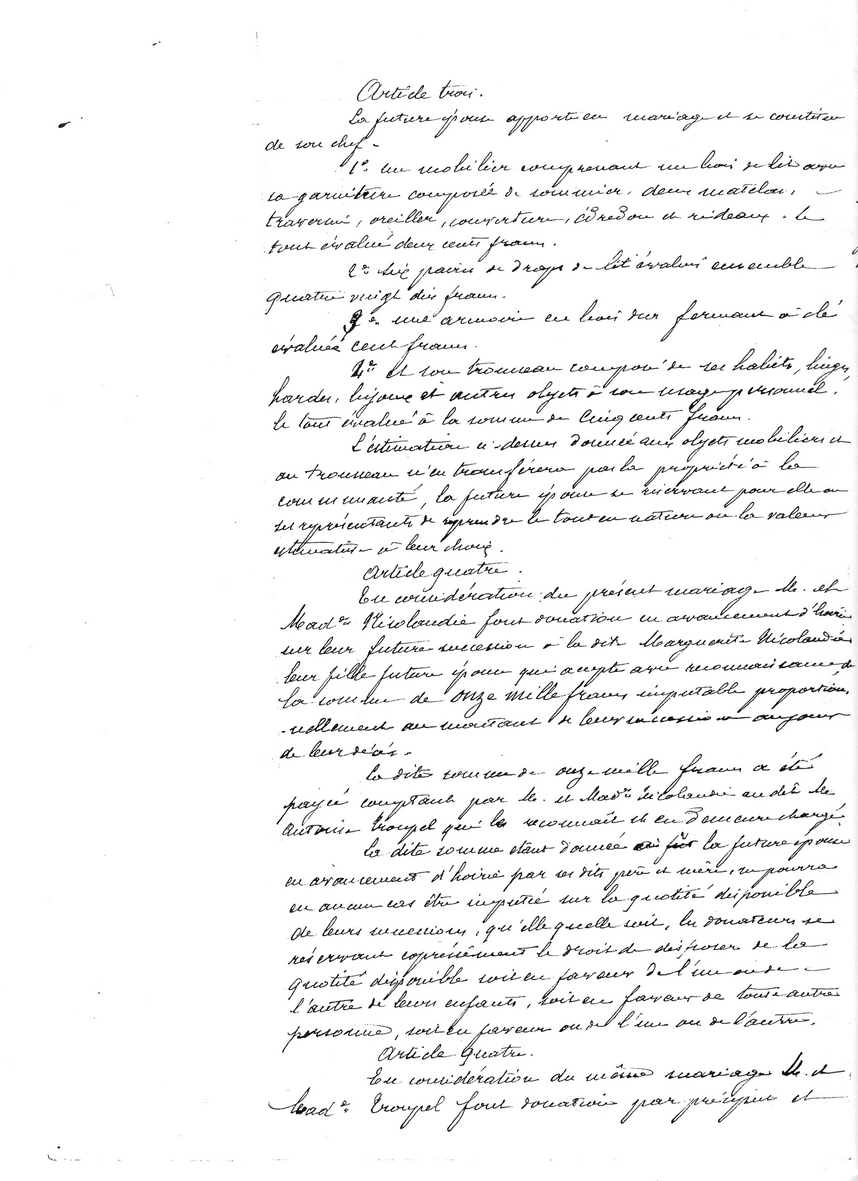 Article trois.
La future épouse apporte en mariage et se constitue
de son chef.
1° un mobilier comprenant un bois de lit avec
sa garniture composée de sommier, deux matelas,
traversin, oreiller, couverture, édredon et rideaux. le
tout évalué deux cents francs.
2° six paires de draps de lit évalués ensemble
quatre vingt dix francs.
3° une armoire en bois dur fermant à clé
évaluée cent francs.
4° et son trousseau composé de ses habits, linges,
hardes, bijoux et autres objets à son usage personnel,
le tout évalué à la somme de cinq cents francs.
L'estimation ci-dessus donnée aux objets mobiliers et
au trousseau n'en transférera pas la propriété à la
communauté, la future épouse se réservant pour elle ou
ses représentants de reprendre le tout en nature ou la valeur
estimative à leur choix.
Article quatre.
En considération du présent mariage M. et
Mad.e Nicolaudie font donation en avancement d'hoirie
sur leur future succession à la dite Marguerite Nicolaudie
leur fille future épouse qui accepte avec reconnaissance, de
la somme de onze mille francs imputable proportion
-nellement au montant de leur succession au jour
de leur décès.
La dite somme de onze mille francs a été
payée comptant par M. et Mad.e Nicolaudie au dit M.
Antoine Troupel qui le reconnaît et en demeure chargé.
La dite somme étant donnée la future épouse
en avancement d'hoirie par ses dits père et mère, ne pourra
en aucun cas être imputée sur la quotité disponible
de leurs successions, qu'elle quelle soit, les donateurs se
réservant expressément le droit de disposer de la
quotité disponible soit en faveur de l'un ou de
l'autre de leurs enfants, soit en faveur de toute autre
personne, soit en faveur ou de l'un ou de l'autre.
Article quatre.
En considération du même mariage M. et
Mad.e Troupel font donation par préciput et